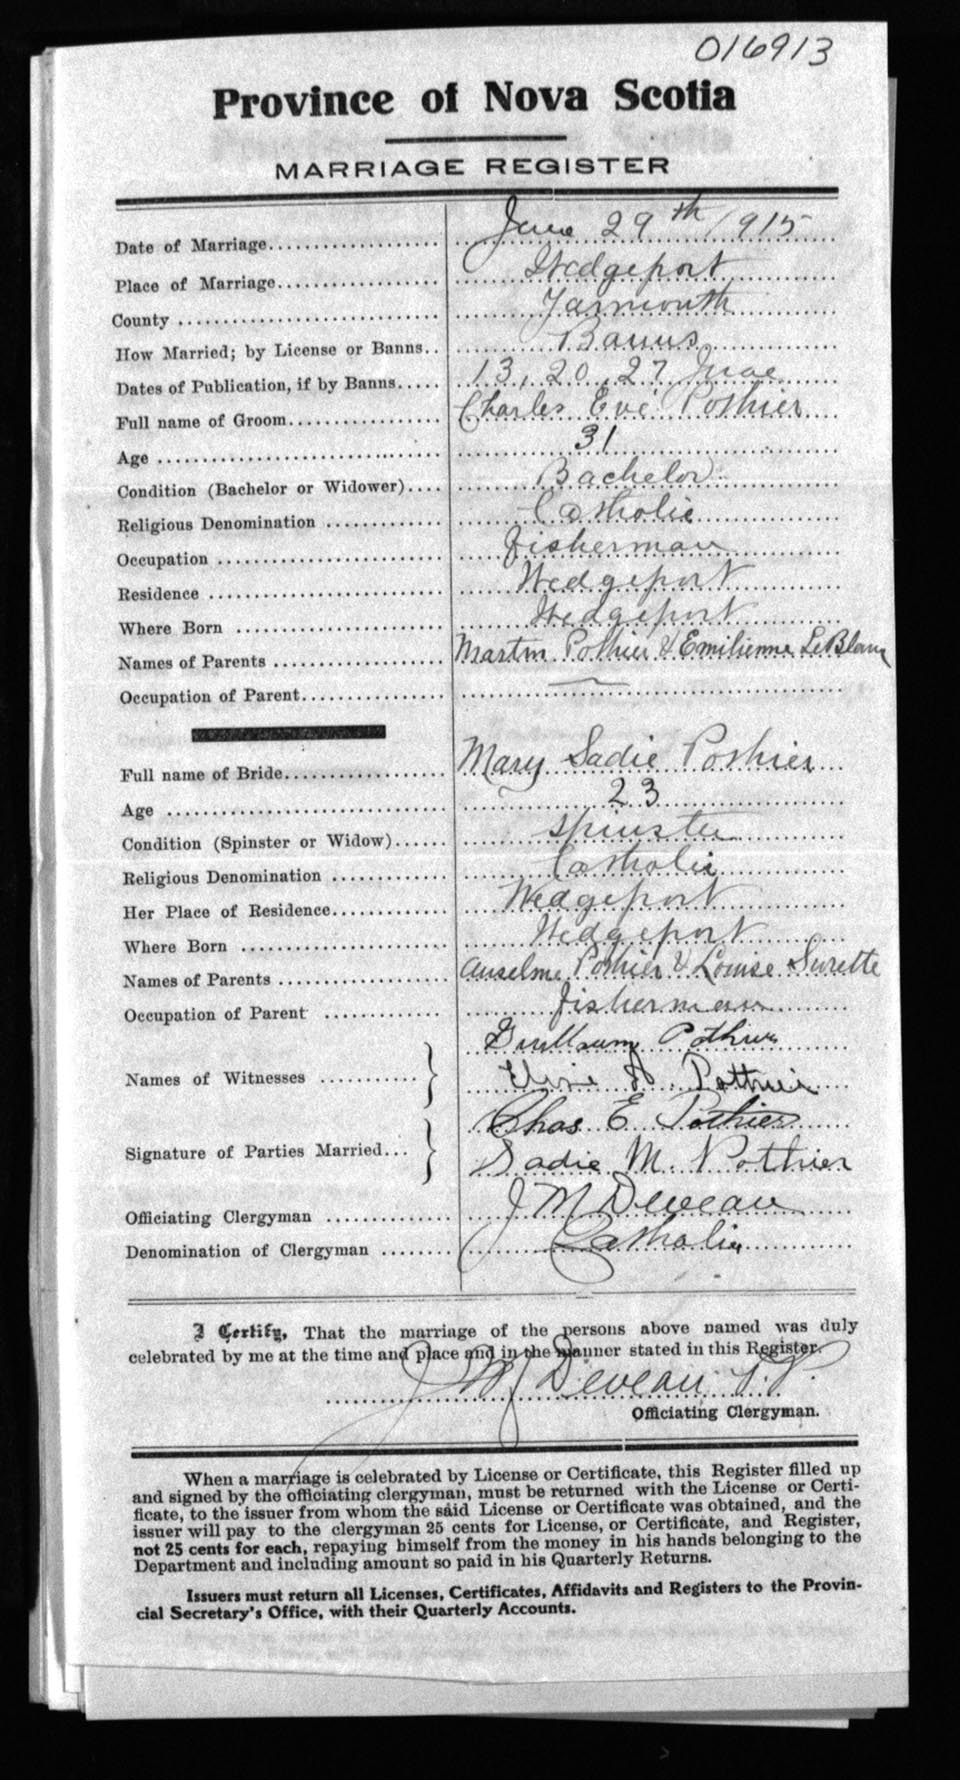 016913
Province of Nova Scotia
MARRIAGE REGISTER
Date of Marriage................... June 29th 1915
Place of Marriage.................. Wedgeport
County .............................. Yarmouth
How Married; by License or Banns.. Banns
Dates of Publication, if by Banns..... 13, 20, 27 June
Full name of Groom.................. Charles Evé Pothier
Age .................................. 31
Condition (Bachelor or Widower).... Bachelor
Religious Denomination ............. Catholic
Occupation .......................... Fisherman
Residence ........................... Wedgeport
Where Born ........................ Wedgeport
Names of Parents ................... Martin Pothier & Emilienne LeBlanc
Occupation of Parent................ —
Full name of Bride.................. Mary Sadie Pothier
Age ................................. 23
Condition (Spinster or Widow)...... Spinster
Religious Denomination ............. Catholic
Her Place of Residence............. Wedgeport
Where Born ........................ Wedgeport
Names of Parents ................... Anselme Pothier & Louise Surette
Occupation of Parent ............. Fisherman
Pothier
Names of Witnesses ........... Pothier
Chas E. Pothier
Signature of Parties Married... Sadie M. Pothier
Officiating Clergyman .............. J M Deveau
Denomination of Clergyman ........ Catholic
I Certify, That the marriage of the persons above named was duly
celebrated by me at the time and place and in the manner stated in this Register.
J M Deveau P.P.
Officiating Clergyman.
When a marriage is celebrated by License or Certificate, this Register filled up
and signed by the officiating clergyman, must be returned with the License or Certi-
ficate, to the issuer from whom the said License or Certificate was obtained, and the
issuer will pay to the clergyman 25 cents for License, or Certificate, and Register,
not 25 cents for each, repaying himself from the money in his hands belonging to the
Department and including amount so paid in his Quarterly Returns.
Issuers must return all Licenses, Certificates, Affidavits and Registers to the Provin-
cial Secretary's Office, with their Quarterly Accounts.